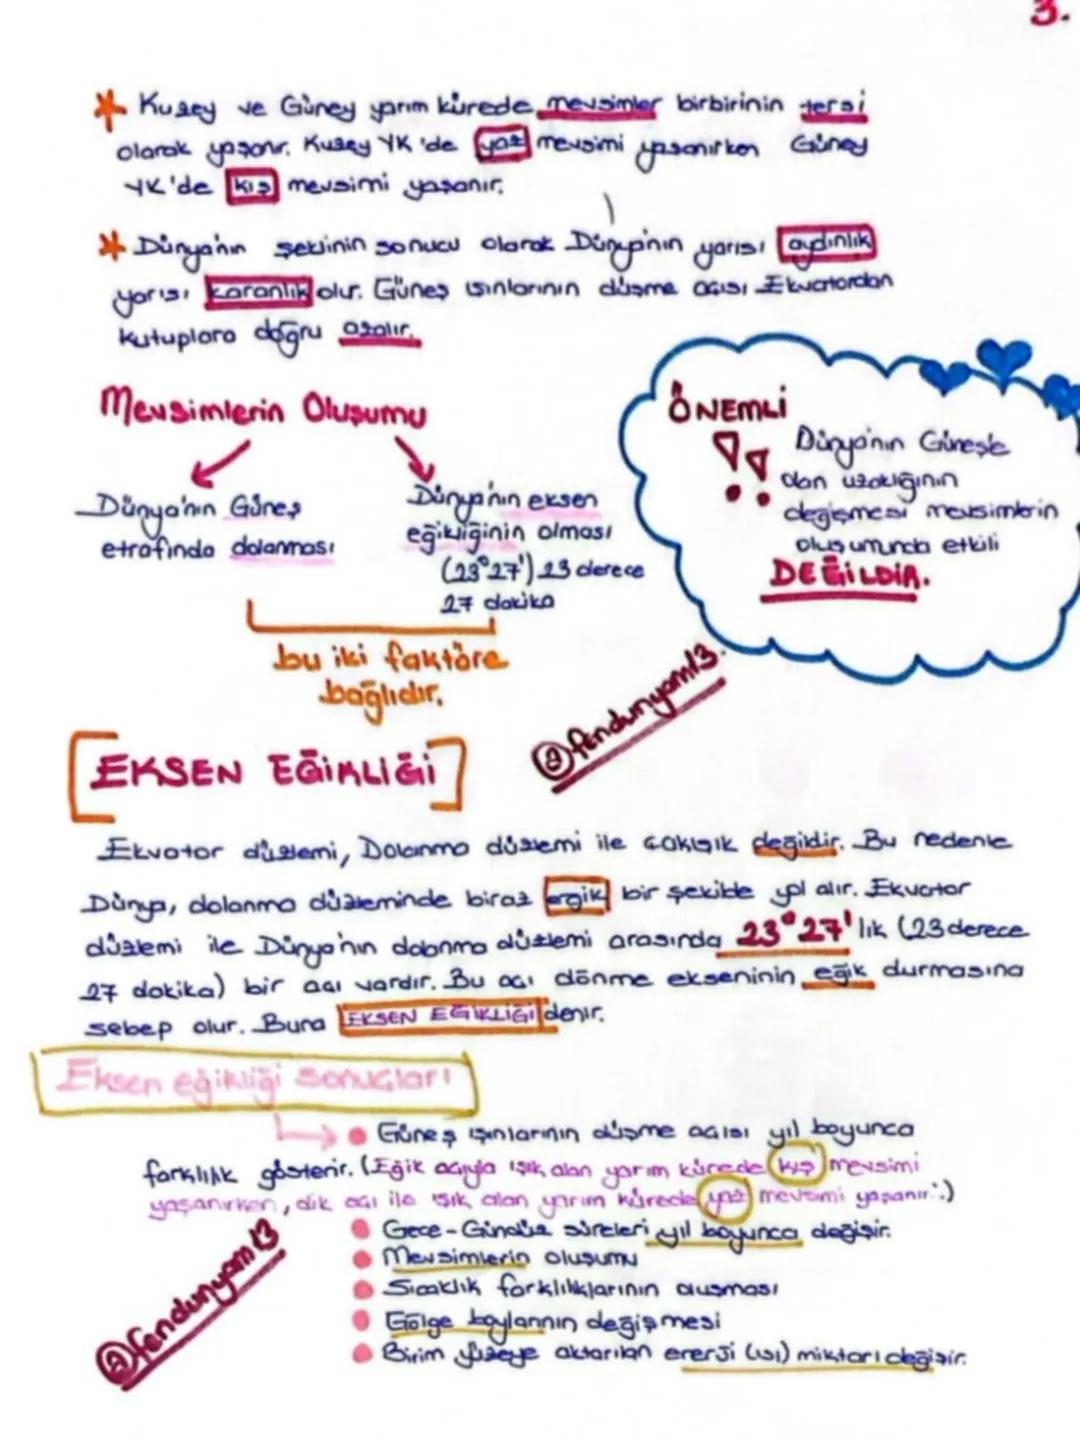 3.
* Kuzey ve Güney yarım kürede mevsimler birbirinin tersi
olarak yaşanır. Kuzey YK'de yaz mevsimi yaşanırken Güney
YK'de kış mevsimi yaşanır.
* Dünya'nın şeklinin sonucu olarak Dünya'nın yarısı aydınlık
yarısı karanlık olur. Güneş ışınlarının düşme açısı Ekvatordan
kutuplara doğru azalır.
Mevsimlerin Oluşumu
Dünya'nın Güneş
etrafında dolanması
Dünya'nın eksen
eğikliğinin olması
(23°27') 23 derece
27 dakika
bu iki faktöre
bağlıdır.
ÖNEMLİ
!! Dünya'nın Güneş'e
olan uzaklığının
değişmesi mevsimlerin
oluşumunda etkili
DEĞİLDİR.
@fendunyam13.
[EKSEN EĞİKLİĞİ]
Ekvator düzlemi, Dolanma düzlemi ile çakışık değildir. Bu nedenle
Dünya, dolanma düzleminde biraz eğik bir şekilde yol alır. Ekvator
düzlemi ile Dünya'nın dolanma düzlemi arasında 23°27' lık (23 derece
27 dakika) bir açı vardır. Bu açı dönme ekseninin eğik durmasına
sebep olur. Buna EKSEN EĞİKLİĞİ denir.
Eksen eğikliği sonuçları
• Güneş ışınlarının düşme açısı yıl boyunca
farklılık gösterir. (Eğik açıyla ışık alan yarım kürede kış mevsimi
yaşanırken, dik açı ile ışık alan yarım kürede yaz mevsimi yaşanır.)
• Gece-Gündüz süreleri yıl boyunca değişir.
• Mevsimlerin oluşumu
• Sıcaklık farklılıklarının oluşması
• Gölge boylarının değişmesi
• Birim yüzeye aktarılan enerji (ısı) miktarı değişir.
@fendunyam13